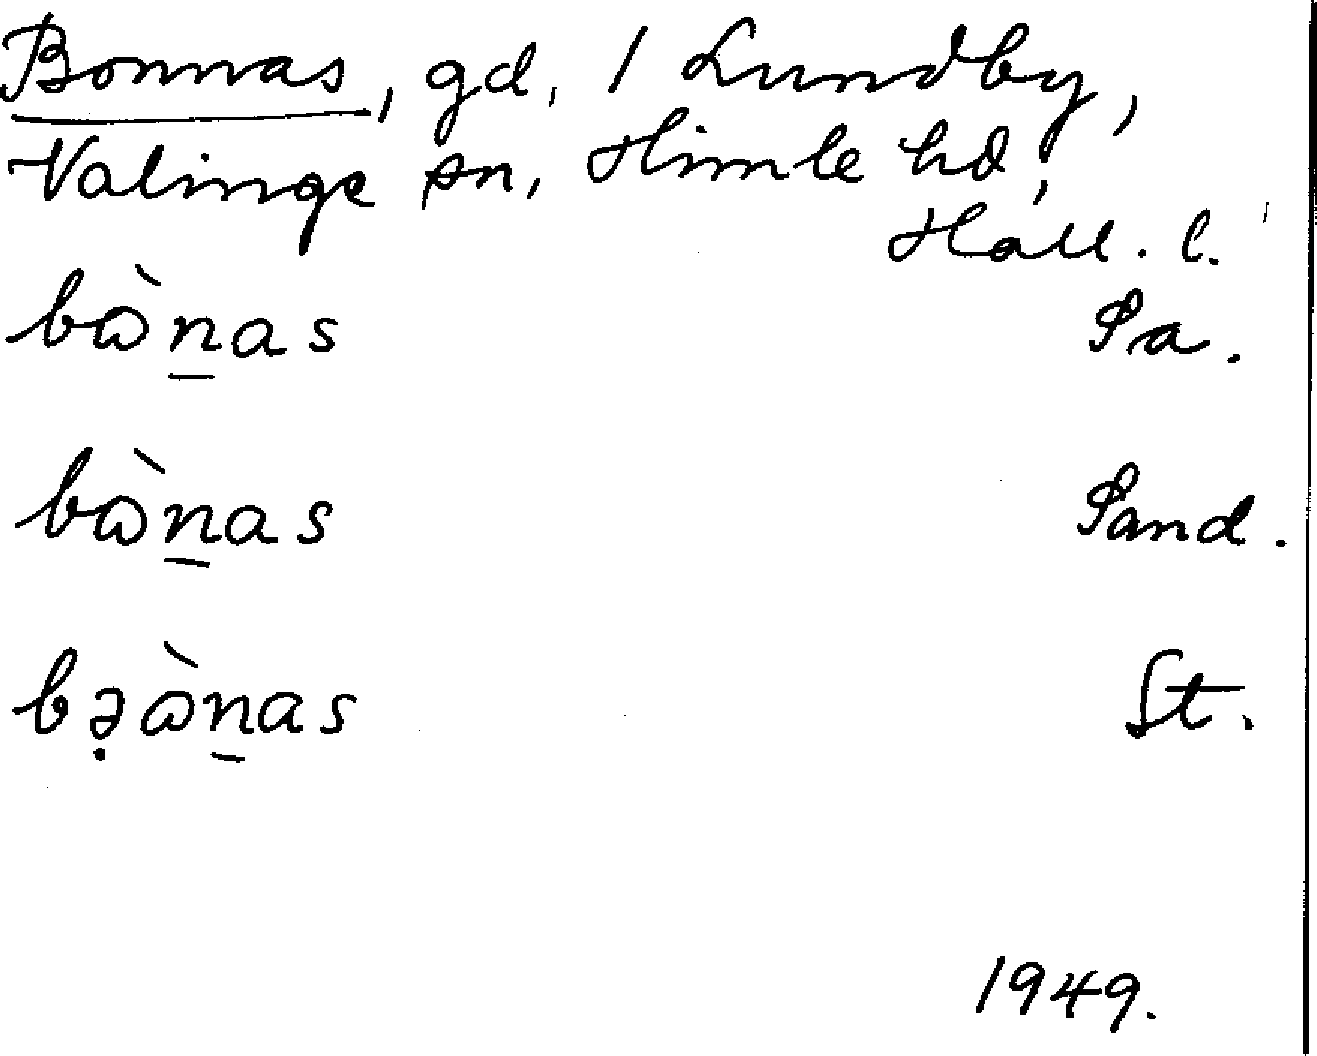 Bonnas, gd, 1 Lundby,
Valinge sn, Himle hd,
Hall. l.
bɷ̀n̲as Pa.
bɷ̀n̲as Pand.
bə̣ɷ̀n̲as St.
1949.